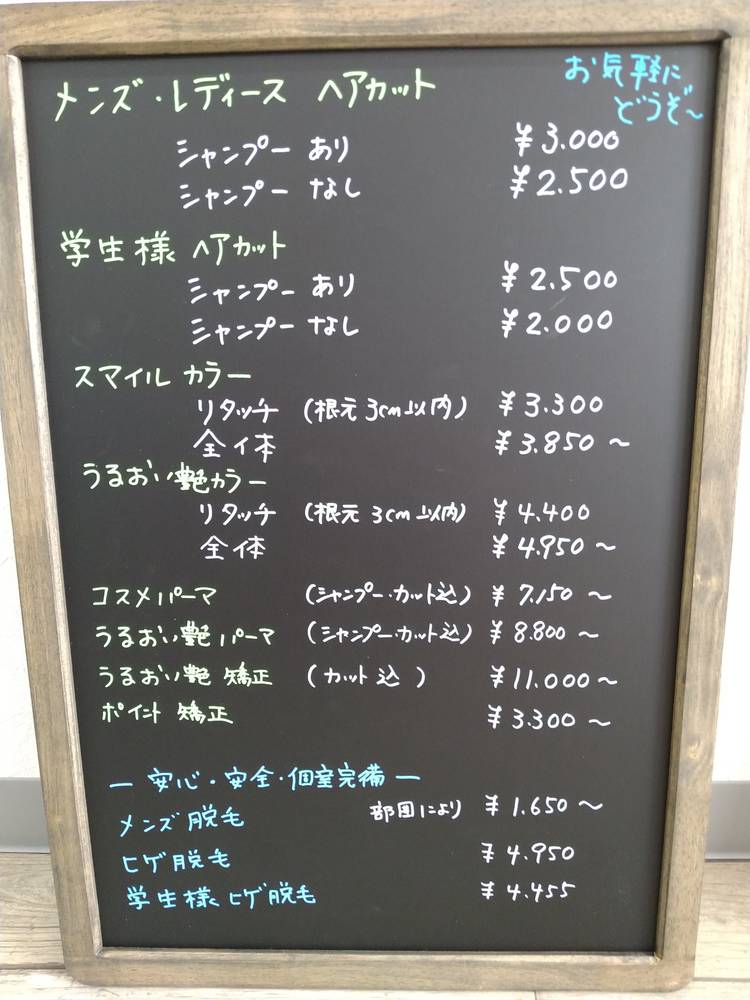 メンズ・レディース ヘアカット
お気軽に
どうぞ〜
シャンプー あり ¥3.000
シャンプー なし ¥2.500
学生様 ヘアカット
シャンプー あり ¥2.500
シャンプー なし ¥2.000
スマイル カラー
リタッチ (根元3cm以内) ¥3.300
全体 ¥3.850〜
うるおい艶カラー
リタッチ (根元3cm以内) ¥4.400
全体 ¥4.950〜
コスメパーマ (シャンプー・カット込) ¥7.150〜
うるおい艶パーマ (シャンプー・カット込) ¥8.800〜
うるおい艶 矯正 (カット込) ¥11.000〜
ポイント 矯正 ¥3.300〜
― 安心・安全・個室完備 ―
メンズ脱毛 部囲により ¥1.650〜
ヒゲ脱毛 ¥4.950
学生様ヒゲ脱毛 ¥4.455